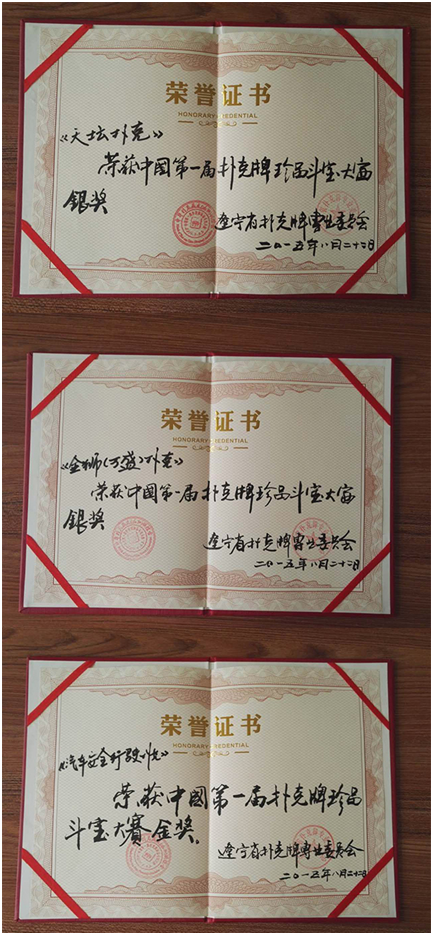 荣誉证书
HONORARY CREDENTIAL
《天坛扑克》
荣获中国第一届扑克牌珍品斗宝大赛
银奖
辽宁省扑克牌专业委员会
二〇一五年八月二十二日
荣誉证书
HONORARY CREDENTIAL
《金狮(万盛)扑克》
荣获中国第一届扑克牌珍品斗宝大赛
银奖
辽宁省扑克牌专业委员会
二〇一五年八月二十二日
荣誉证书
HONORARY CREDENTIAL
《汽车安全行驶》
荣获中国第一届扑克牌珍品
斗宝大赛金奖.
辽宁省扑克牌专业委员会
二〇一五年八月二十二日